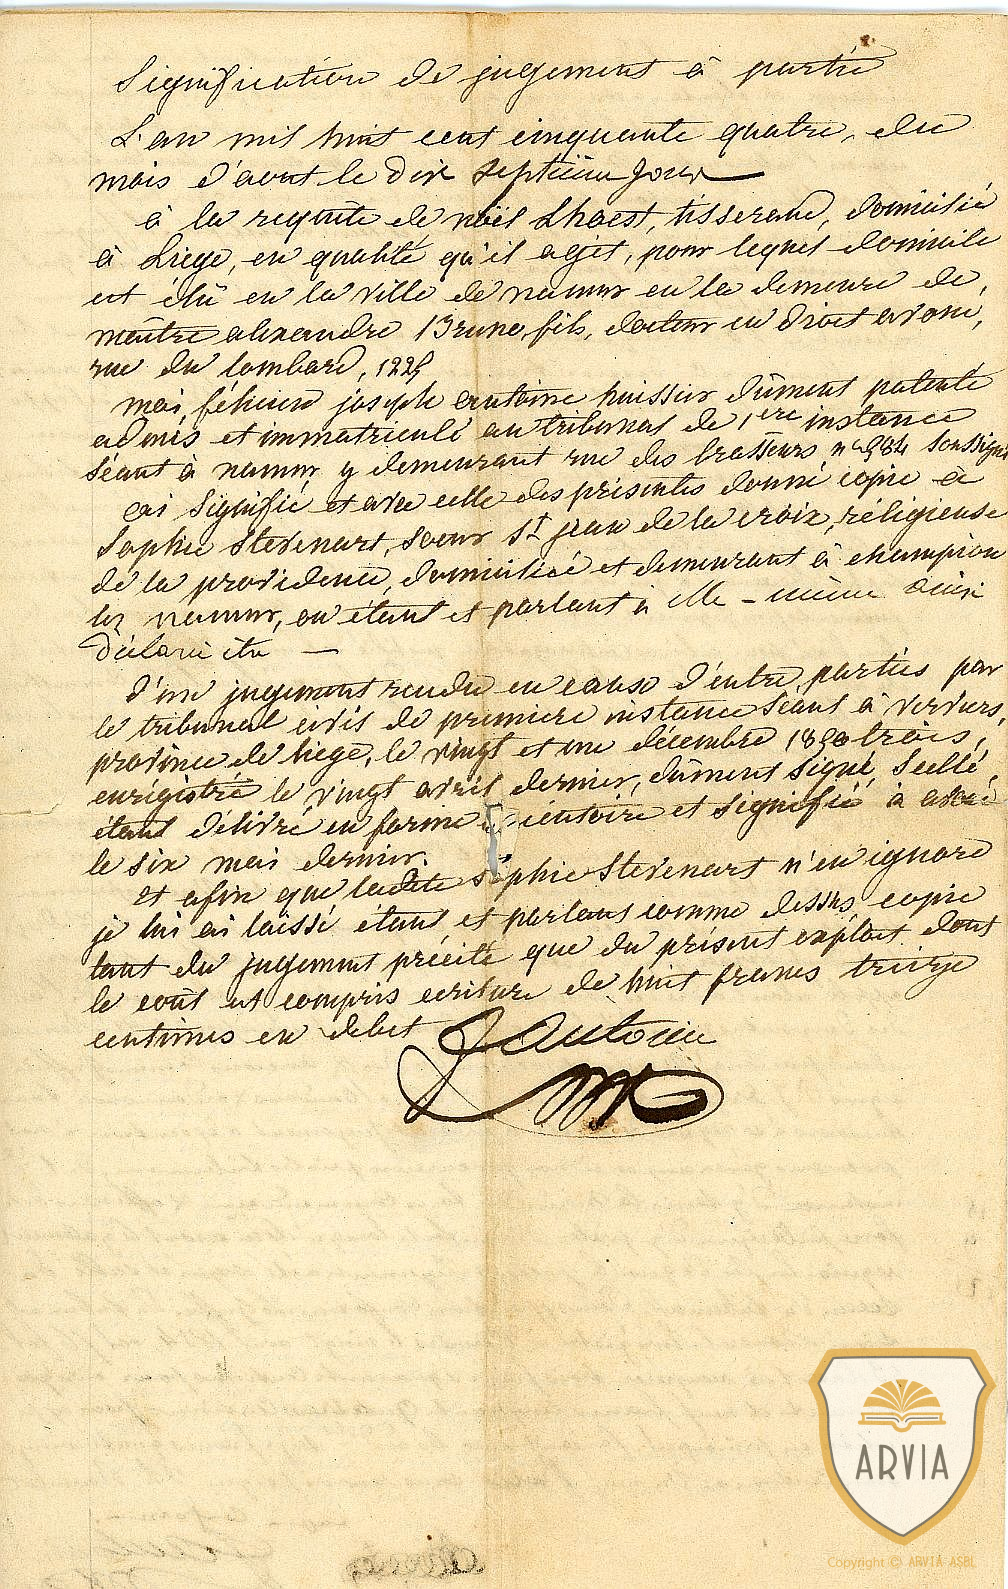 Signification de jugement à partie
L'an mil huit cent cinquante quatre, du
mois d'aout le dix septième jour
à la requête de noël Lhoest, tisserand, domicilié
à Liege, en qualité qu'il agit, pour lequel domicile
est élû en la ville de namur en la demeure de,
maître alexandre Bruno, fils, docteur en droit avoué,
rue du lombard, 1225
moi, félicien joseph antoine huissier dûment patenté
admis et immatriculé au tribunal de 1ere instance
séant à namur, y demeurant rue des brasseurs n° 984 soussigné
ai signifié et avec celle des présentes donné copie à
Sophie Stevenart, soeur St jean de la croix, réligieuse
de la providence, domiciliée et demeurant à champion
lez namur, en étant et parlant à elle - même ainsi
déclaré être
d'un jugement rendu en cause d'entre parties par
le tribunal civil de premiere instance séant à verviers,
province de liege, le vingt et un décembre 1850 trois,
enrégistré le vingt avril dernier, dûment signé, scellé,
étant délivré en forme et signifié à avoué
le six mai dernier.
et afin que ladite Sophie Stevenart n'en ignore
je lui ai laissé étant et parlant comme dessus copie
tant du jugement précité que du présent exploit dont
le coût est compris ecriture de huit francs treize
centimes en debet
Antoine
ARVIA
Copyright © ARVIA ASBL